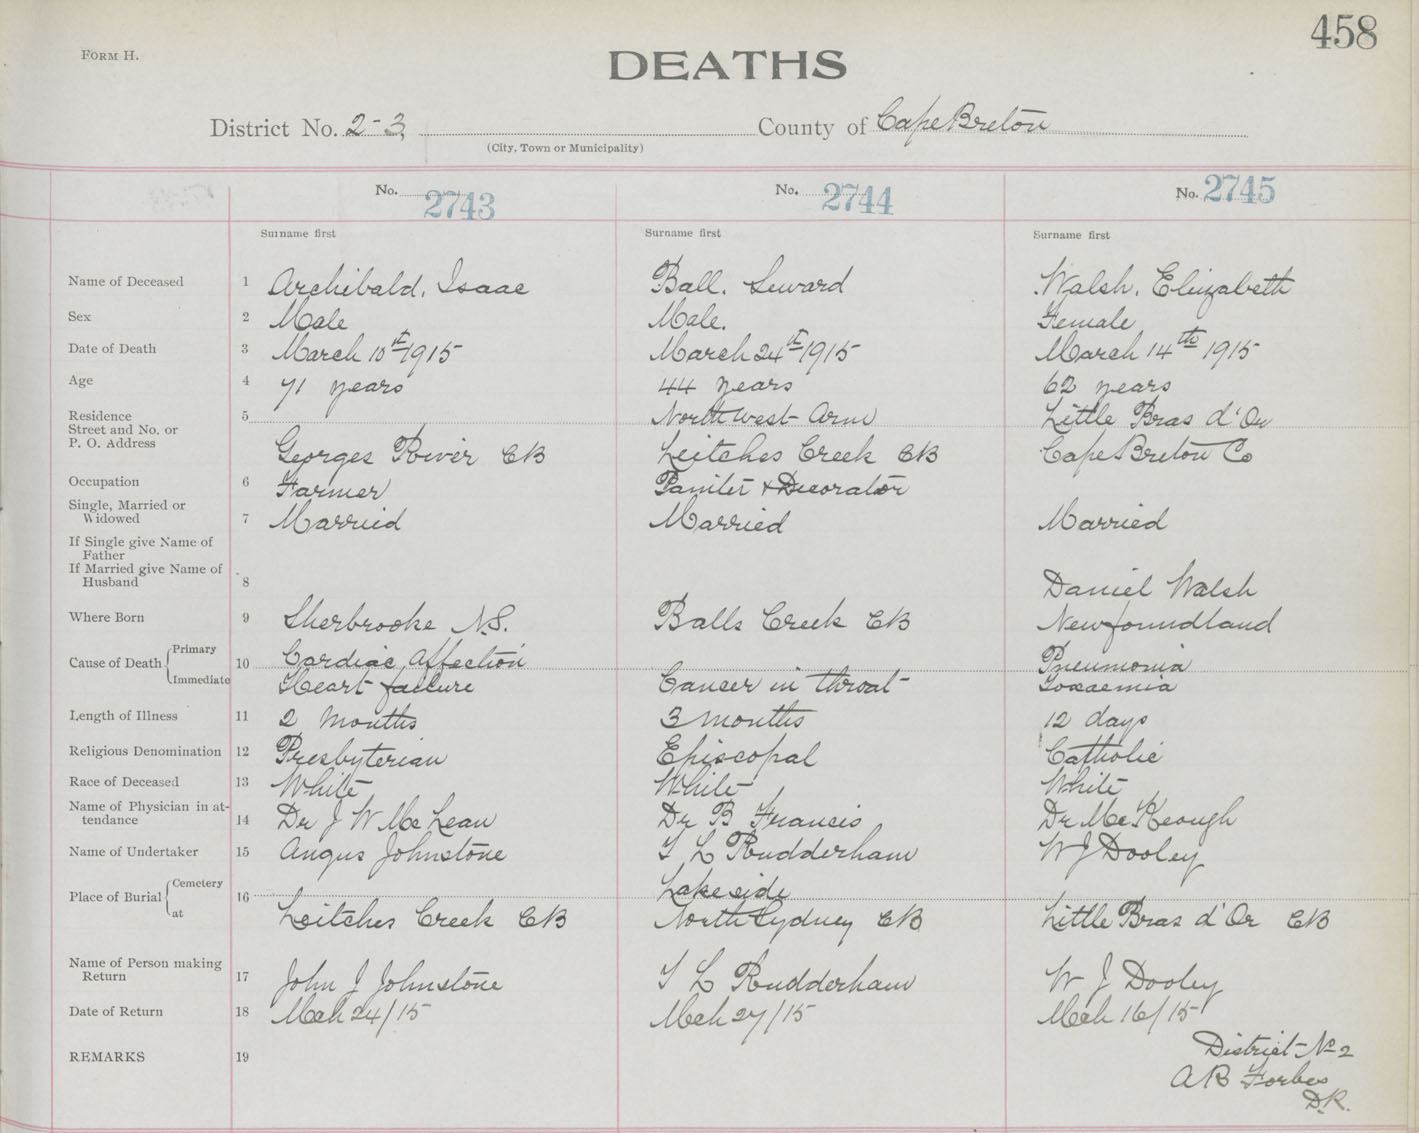 458
FORM H.
DEATHS
District No. 2-3, County of Cape Breton
(City, Town or Municipality)
No. 2743 No. 2744 No. 2745
Surname first Surname first Surname first
Name of Deceased 1 Archibald, Isaac Ball. Seward Walsh, Elizabeth
Sex 2 Male Male. Female
Date of Death 3 March 10th 1915 March 24th 1915 March 14th 1915
Age 4 71 years 44 years 62 years
Residence 5 North West Arm Little Bras d'Or
Street and No. or
P. O. Address Georges River CB Leitches Creek CB Cape Breton Co
Occupation 6 Farmer Painter & Decorator
Single, Married or
Widowed 7 Married Married Married
If Single give Name of
Father
If Married give Name of
Husband 8 Daniel Walsh
Where Born 9 Sherbrooke N.S. Balls Creek CB Newfoundland
Cause of Death Primary 10 Cardiac Affection Pneumonia
Immediate Heart failure Cancer in throat Toxaemia
Length of Illness 11 2 Months 3 months 12 days
Religious Denomination 12 Presbyterian Episcopal Catholic
Race of Deceased 13 White White White
Name of Physician in at-
tendance 14 Dr J W McLean Dr B Francis Dr McKeough
Name of Undertaker 15 Angus Johnstone T L Rudderham W J Dooley
Place of Burial Cemetery 16 Lakeside
at Leitches Creek CB North Sydney CB Little Bras d'Or CB
Name of Person making
Return 17 John J Johnstone T L Rudderham W J Dooley
Date of Return 18 Mch 24/15 Mch 27/15 Mch 16/15
REMARKS 19 District No 2
A B Forbes
D.R.